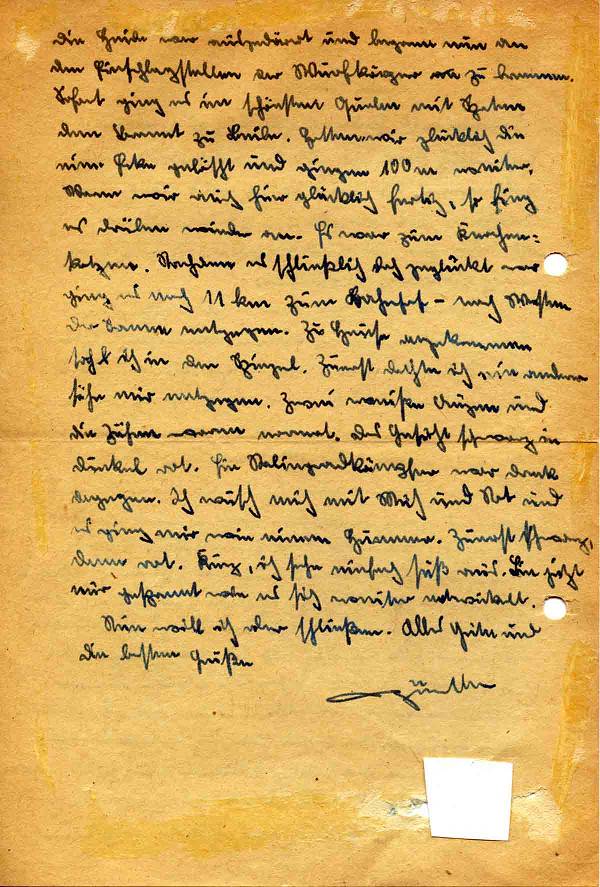 Die Heide war ausgedörrt und begann nun an
den Einschlagstellen der Wurfkörper an zu brennen.
Sofort ging es im schönsten Qualm mit Spaten
dem Brand zu Leibe. Hatten wir glücklich die
eine Ecke gelöscht und gingen 100 m weiter.
Waren wir auch hier glücklich fertig, so fing
es drüben wieder an. Es war zum Knochen=
kotzen. Nachdem es schließlich doch geglückt war
ging es noch 11 km zum Bahnhof – nach Westen
der Sonne entgegen. Zu Hause angekommen
sah ich in den Spiegel. Zuerst dachte ich ein anderer
sähe mir entgegen. Zwei weiße Augen und
die Zähne waren normal. Das Gesicht schwarz in
dunkel rot. Ein Stalingradkämpfer war Dreck
dagegen. Ich wusch mich mit Müh und Not und
es ging mir wie einem Hummer. Zuerst schwarz,
dann rot. Kurz, ich sehe einfach süß aus. Bin jetzt
nur gespannt wie es sich weiter entwickelt.
Nun will ich aber schließen. Alles Gute und
die besten Grüße
Günther